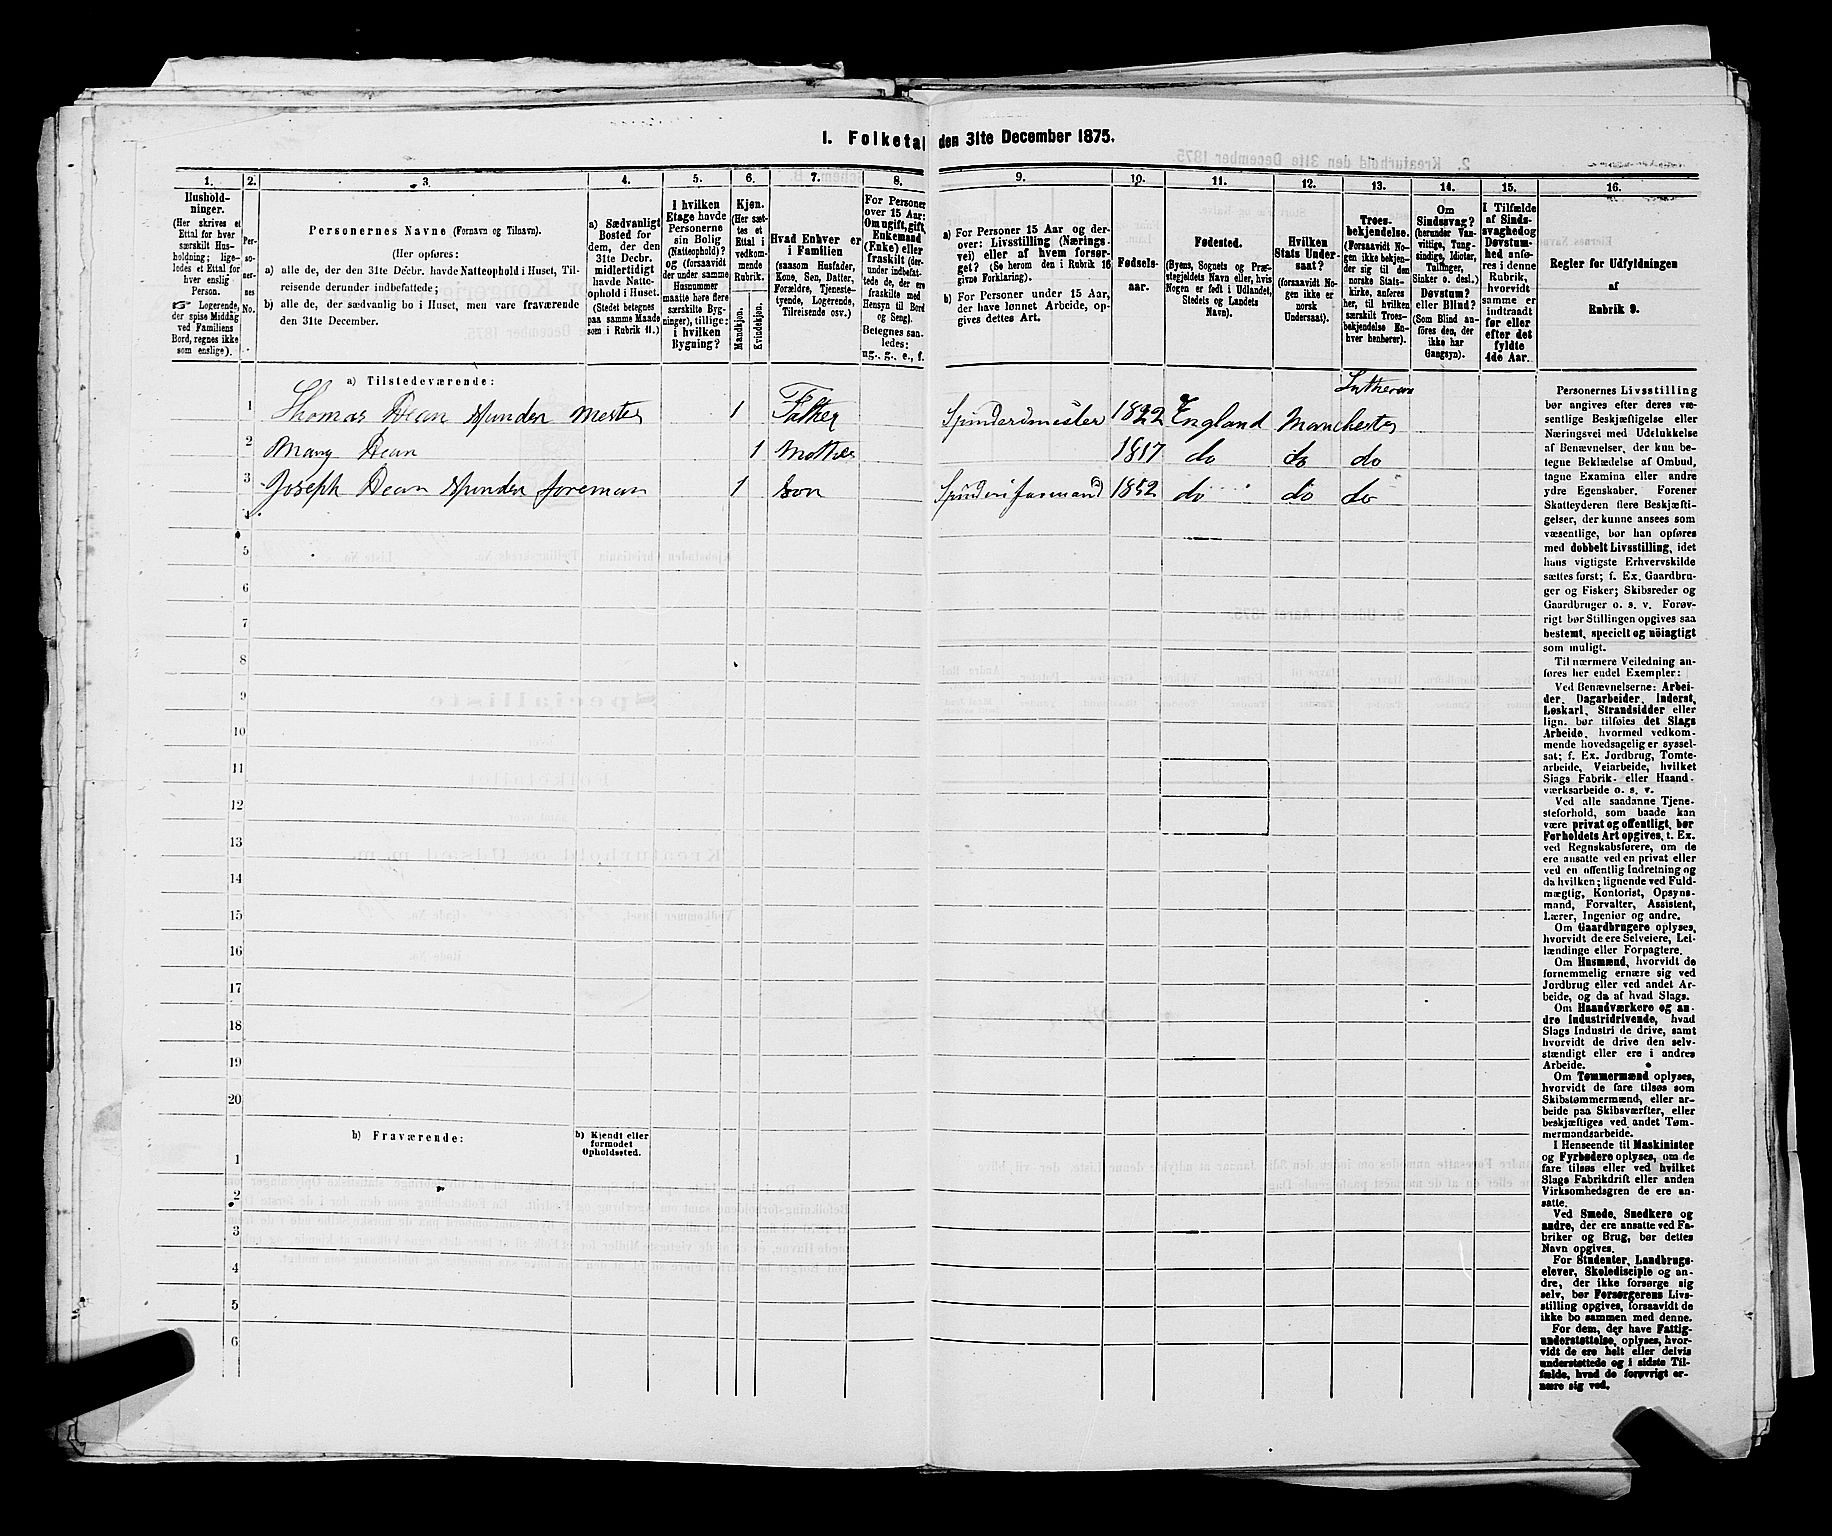 I. Folketal den 31te December 1875.
1. 2. 3. 4. 5. 6. 7. 8. 9. 10. 11. 12. 13. 14. 15. 16.
Hushold-
ninger.
(Her skrives et
Ettal for hver
særskilt Hus-
holdning; lige-
ledes et Ettal for
hver enslig
Person.
☞ Logerende,
der spise Middag
ved Familiens
Bord, regnes ikke
som enslige).
Per-
so-
ner-
nes
No.
Personernes Navne (Fornavn og Tilnavn).
(Her opføres:
a) alle de, der den 31te Decbr. havde Natteophold i Huset, Til-
reisende derunder indbefattede;
b) alle de, der sædvanlig bo i Huset, men vare fraværende
den 31te December.
a) Sædvanligt
Bosted for
dem, der den
31te Decbr.
midlertidigt
havde Natte-
ophold i Huset.
(Stedet betegnes
paa samme Maade
som i Rubrik 11.)
I hvilken
Etage havde
Personerne
sin Bolig
(Natteophold)?
og (forsaavidt
der under samme
Husnummer
maatte høre flere
særskilte Byg-
ninger), tillige:
i hvilken
Bygning?
Kjøn.
(Her sæt-
tes et
Ettal i
vedkom-
mende
Rubrik.
Mandkjøn.
Kvindekjøn.
Hvad Enhver er
i Familien
(saasom Husfader,
Kone, Søn, Datter,
Forældre, Tjeneste-
tyende, Logerende,
Tilreisende osv.)
For Personer
over 15 Aar:
Om ugift, gift,
Enkemand
(Enke) eller
fraskilt (der-
under indbefat-
tede de, der ere
fraskilte med
Hensyn til Bord
og Seng).
Betegnes saa-
ledes:
ug., g., e., f.
a) For Personer 15 Aar og der-
over: Livsstilling (Nærings-
vei) eller af hvem forsør-
get? (Se herom den i Rubrik 16
givne Forklaring).
b) For Personer under 15 Aar,
der have lønnet Arbeide, op-
gives dettes Art.
Fødsels-
aar.
Fødested.
(Byens, Sognets og Præ-
stegjeldets Navn eller, hvis
Nogen er født i Udlandet,
Stedets og Landets
Navn).
Hvilken
Stats Under-
saat?
(forsaavidt No-
gen ikke er
norsk
Undersaat).
Troes-
bekjendelse.
(Forsaavidt No-
gen ikke bekjen-
der sig til den
norske Stats-
kirke, anføres
her, til hvilken
særskilt Troes-
bekjendelse En-
hver henhører).
Om
Sindssvag?
(herunder Van-
vittige, Tung-
sindige, Idioter,
Tullinger,
Sinker o. desl.)
Døvstum?
eller Blind?
(Som Blind an-
føres den, der
ikke har
Gangsyn).
I Tilfælde
af Sinds-
svaghed og
Døvstum-
hed anfø-
res i denne
Rubrik,
hvorvidt
samme er
indtraadt
før eller
efter det
fyldte
4de Aar.
Regler for Udfyldningen
af
Rubrik 9.
a) Tilstedeværende:
Lutheran
1 Thomas Dean spunden mester 1 Father Spinderimester 1822 England Manchester
2 Mary Dean 1 Mother 1817 do do do
3 Joseph Dean spunden foreman 1 son Spinderiformand 1852 do do do
4
5
6
7
8
9
10
11
12
13
14
15
16
17
18
19
20
b) Fraværende:
b) Kjendt eller
formodet
Opholdssted.
1
2
3
4
5
6
Personernes Livsstilling
bør angives efter deres væ-
sentlige Beskjæftigelse eller
Næringsvei med Udelukkelse
af Benævnelser, der kun be-
tegne Beklædelse af Ombud,
tagne Examina eller andre
ydre Egenskaber. Forener
Skatteyderen flere Beskjæfti-
gelser, der kunne ansees som
væsentlige, bør han opføres
med dobbelt Livsstilling, idet
hans vigtigste Erhvervskilde
sættes først; f. Ex. Gaardbru-
ger og Fisker; Skibsreder og
Gaardbruger o. s. v. Forøv-
rigt bør Stillingen opgives saa
bestemt, specielt og nöiagtigt
som muligt.
Til nærmere Veiledning an-
føres her endel Exempler:
Ved Benævnelserne: Arbei-
der, Dagarbeider, Inderst,
Løskarl, Strandsidder eller
lign. bør tilføies det Slags
Arbeide, hvormed vedkom-
mende hovedsagelig er syssel-
sat; f. Ex. Jordbrug, Tomte-
arbeide, Veiarbeide, hvilket
Slags Fabrik- eller Haand-
værksarbeide o. s. v.
Ved alle saadanne Tjene-
steforhold, som baade kan
være privat og offentligt, bør
Forholdets Art opgives, t. Ex.
ved Regnskabsførere, om de
ere ansatte ved en privat eller
ved en offentlig Indretning og
da hvilken; lignende ved Fuld-
mægtig, Kontorist, Opsyns-
mand, Forvalter, Assistent,
Lærer, Ingeniør og andre.
Om Gaardbrugere oplyses,
hvorvidt de ere Selveiere, Lei-
lændinge eller Forpagtere.
Om Husmænd, hvorvidt de
fornemmelig ernære sig ved
Jordbrug eller ved andet Ar-
beide, og da af hvad Slags.
Om Haandværkere og an-
dre Industridrivende, hvad
Slags Industri de drive, samt
hvorvidt de drive den selv-
stændigt eller ere i andres
Arbeide.
Om Tømmermænd oplyses,
hvorvidt de fare tilsøs som
Skibstømmermænd, eller ar-
beide paa Skibsværfter, eller
beskjæftiges ved andet Tøm-
mermandsarbeide.
I Henseende til Maskinister
og Fyrbødere oplyses, om de
fare tilsøs eller ved hvilket
Slags Fabrikdrift eller anden
Virksomhedsgren de ere an-
satte.
Ved Smede, Snedkere og
andre, der ere ansatte ved Fa-
briker og Brug, bør dettes
Navn opgives.
For Studenter, Landbrugs-
elever, Skoledisciple og an-
dre, der ikke forsørge sig
selv, bør Forsørgerens Livs-
stilling opgives, forsaavidt de
ikke bo sammen med denne.
For dem, der have Fattig-
understøttelse, oplyses, hvor-
vidt de ere helt eller delvis
understøttede og i sidste Til-
fælde, hvad de forøvrigt er-
nære sig ved.